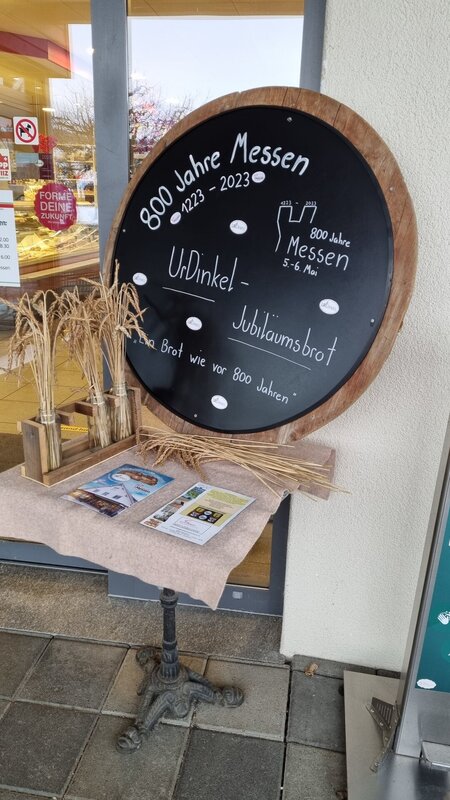 800 Jahre Messen
1223 - 2023
1223 - 2023
800 Jahre
Messen
5.-6. Mai
UrDinkel-
Jubiläumsbrot
„Ein Brot wie vor 800 Jahren"
FORME
DEINE
ZUKUNFT